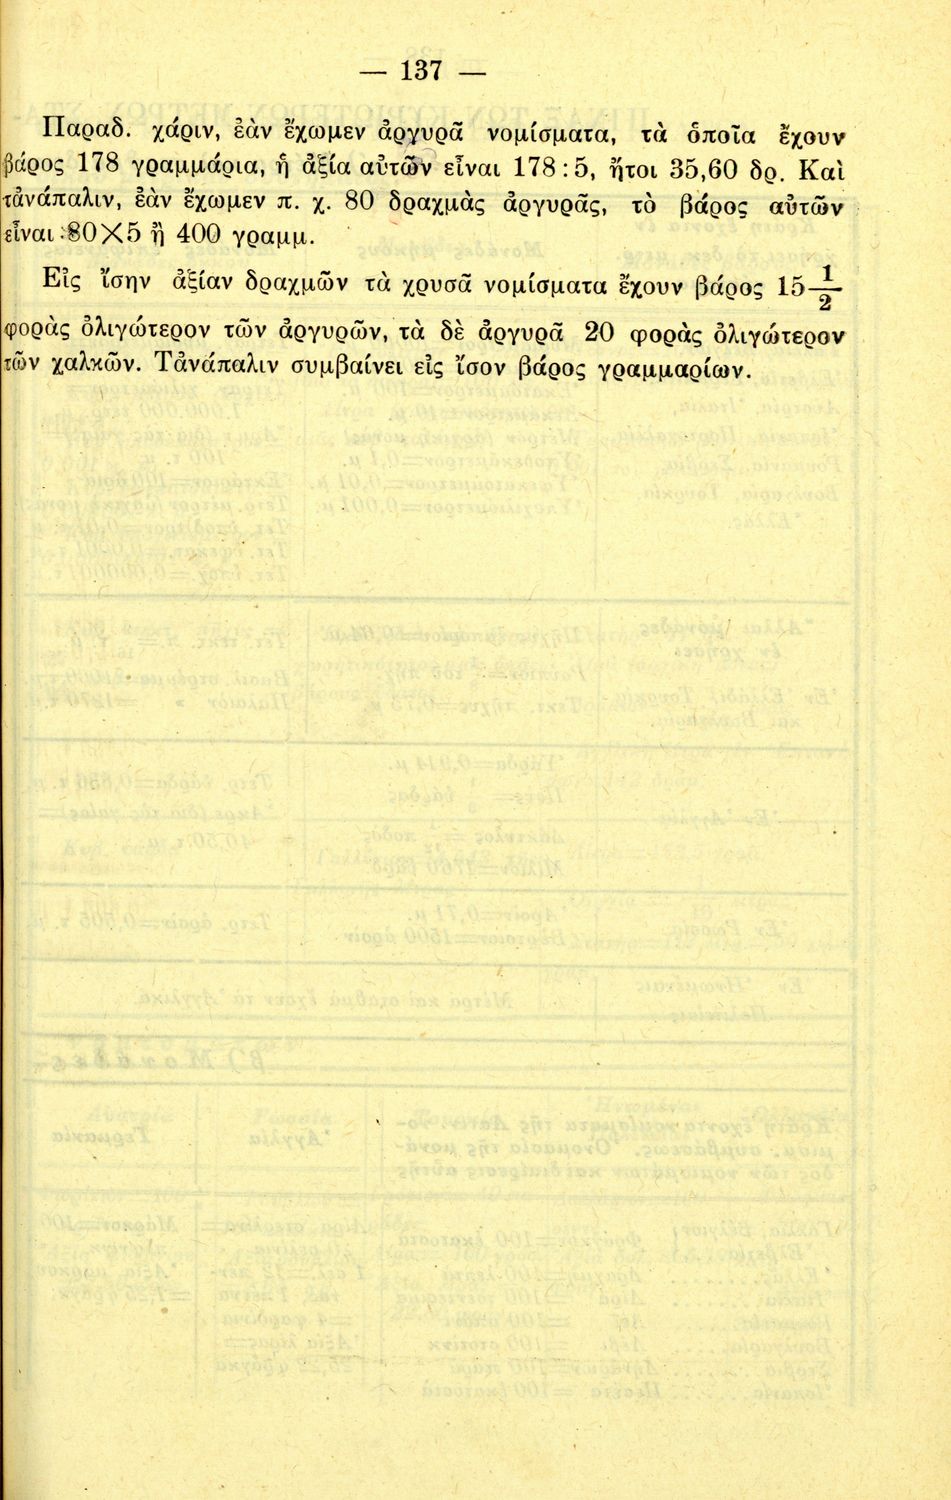 — 137 —
Παραδ. χάριν, ἐὰν ἔχωμεν ἀργυρᾶ νομίσματα, τὰ ὁποῖα ἔχουν
βάρος 178 γραμμάρια, ἡ ἀξία αὐτῶν εἶναι 178 : 5, ἤτοι 35,60 δρ. Καὶ
τἀνάπαλιν, ἐὰν ἔχωμεν π. χ. 80 δραχμὰς ἀργυρᾶς, τὸ βάρος αὐτῶν
εἶναι 80×5 ἢ 400 γραμμ.
Εἰς ἴσην ἀξίαν δραχμῶν τὰ χρυσᾶ νομίσματα ἔχουν βάρος 15 1/2
φορὰς ὀλιγώτερον τῶν ἀργυρῶν, τὰ δὲ ἀργυρᾶ 20 φορὰς ὀλιγώτερον
τῶν χαλκῶν. Τἀνάπαλιν συμβαίνει εἰς ἴσον βάρος γραμμαρίων.